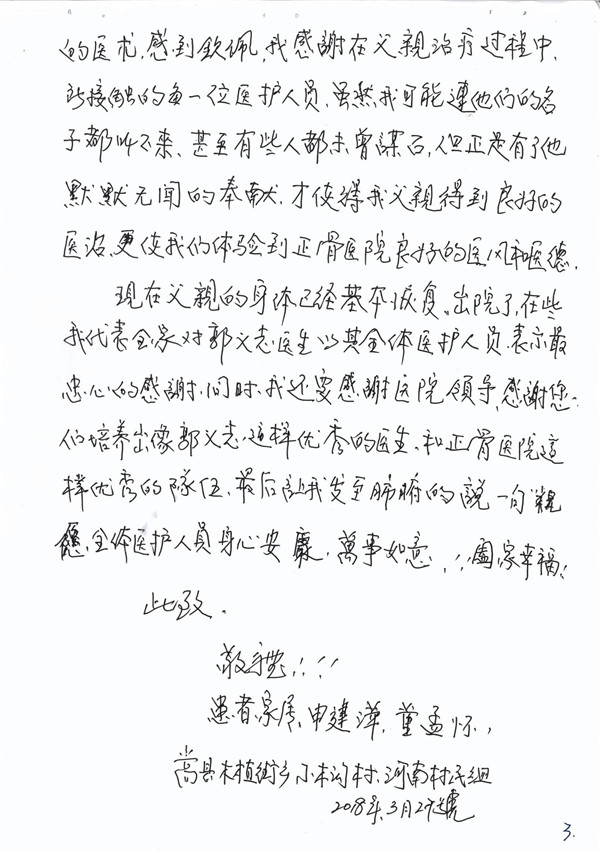 的医术,感到钦佩,我感謝在父親治疗过程中,
所接触的每一位医护人员,虽然我可能連他们的名
子都叫不来、甚至有些人都未曾謀面,但正是有了他
默默无闻的奉献,才使得我父親得到良好的
医治,更使我们体验到正骨医院良好的医风和医德.
现在父親的身体已经基本恢复。出院了,在些
我代表全家对郭义志医生以其全体医护人员,表示最
忠心的感謝,同时,我还要感謝医院领导,感謝您
们培养出像郭义志這样优秀的医生、和正骨医院這
样优秀的隊伍,最后讓我发至肺腑的說一句
愿全体医护人员身心安康,萬事如意!!!阖家幸福!
此致.
敬礼!!!
患者家属,申建 董孟怀,
嵩县木植街乡 村,河南村民组
2018年3月2 號
3.